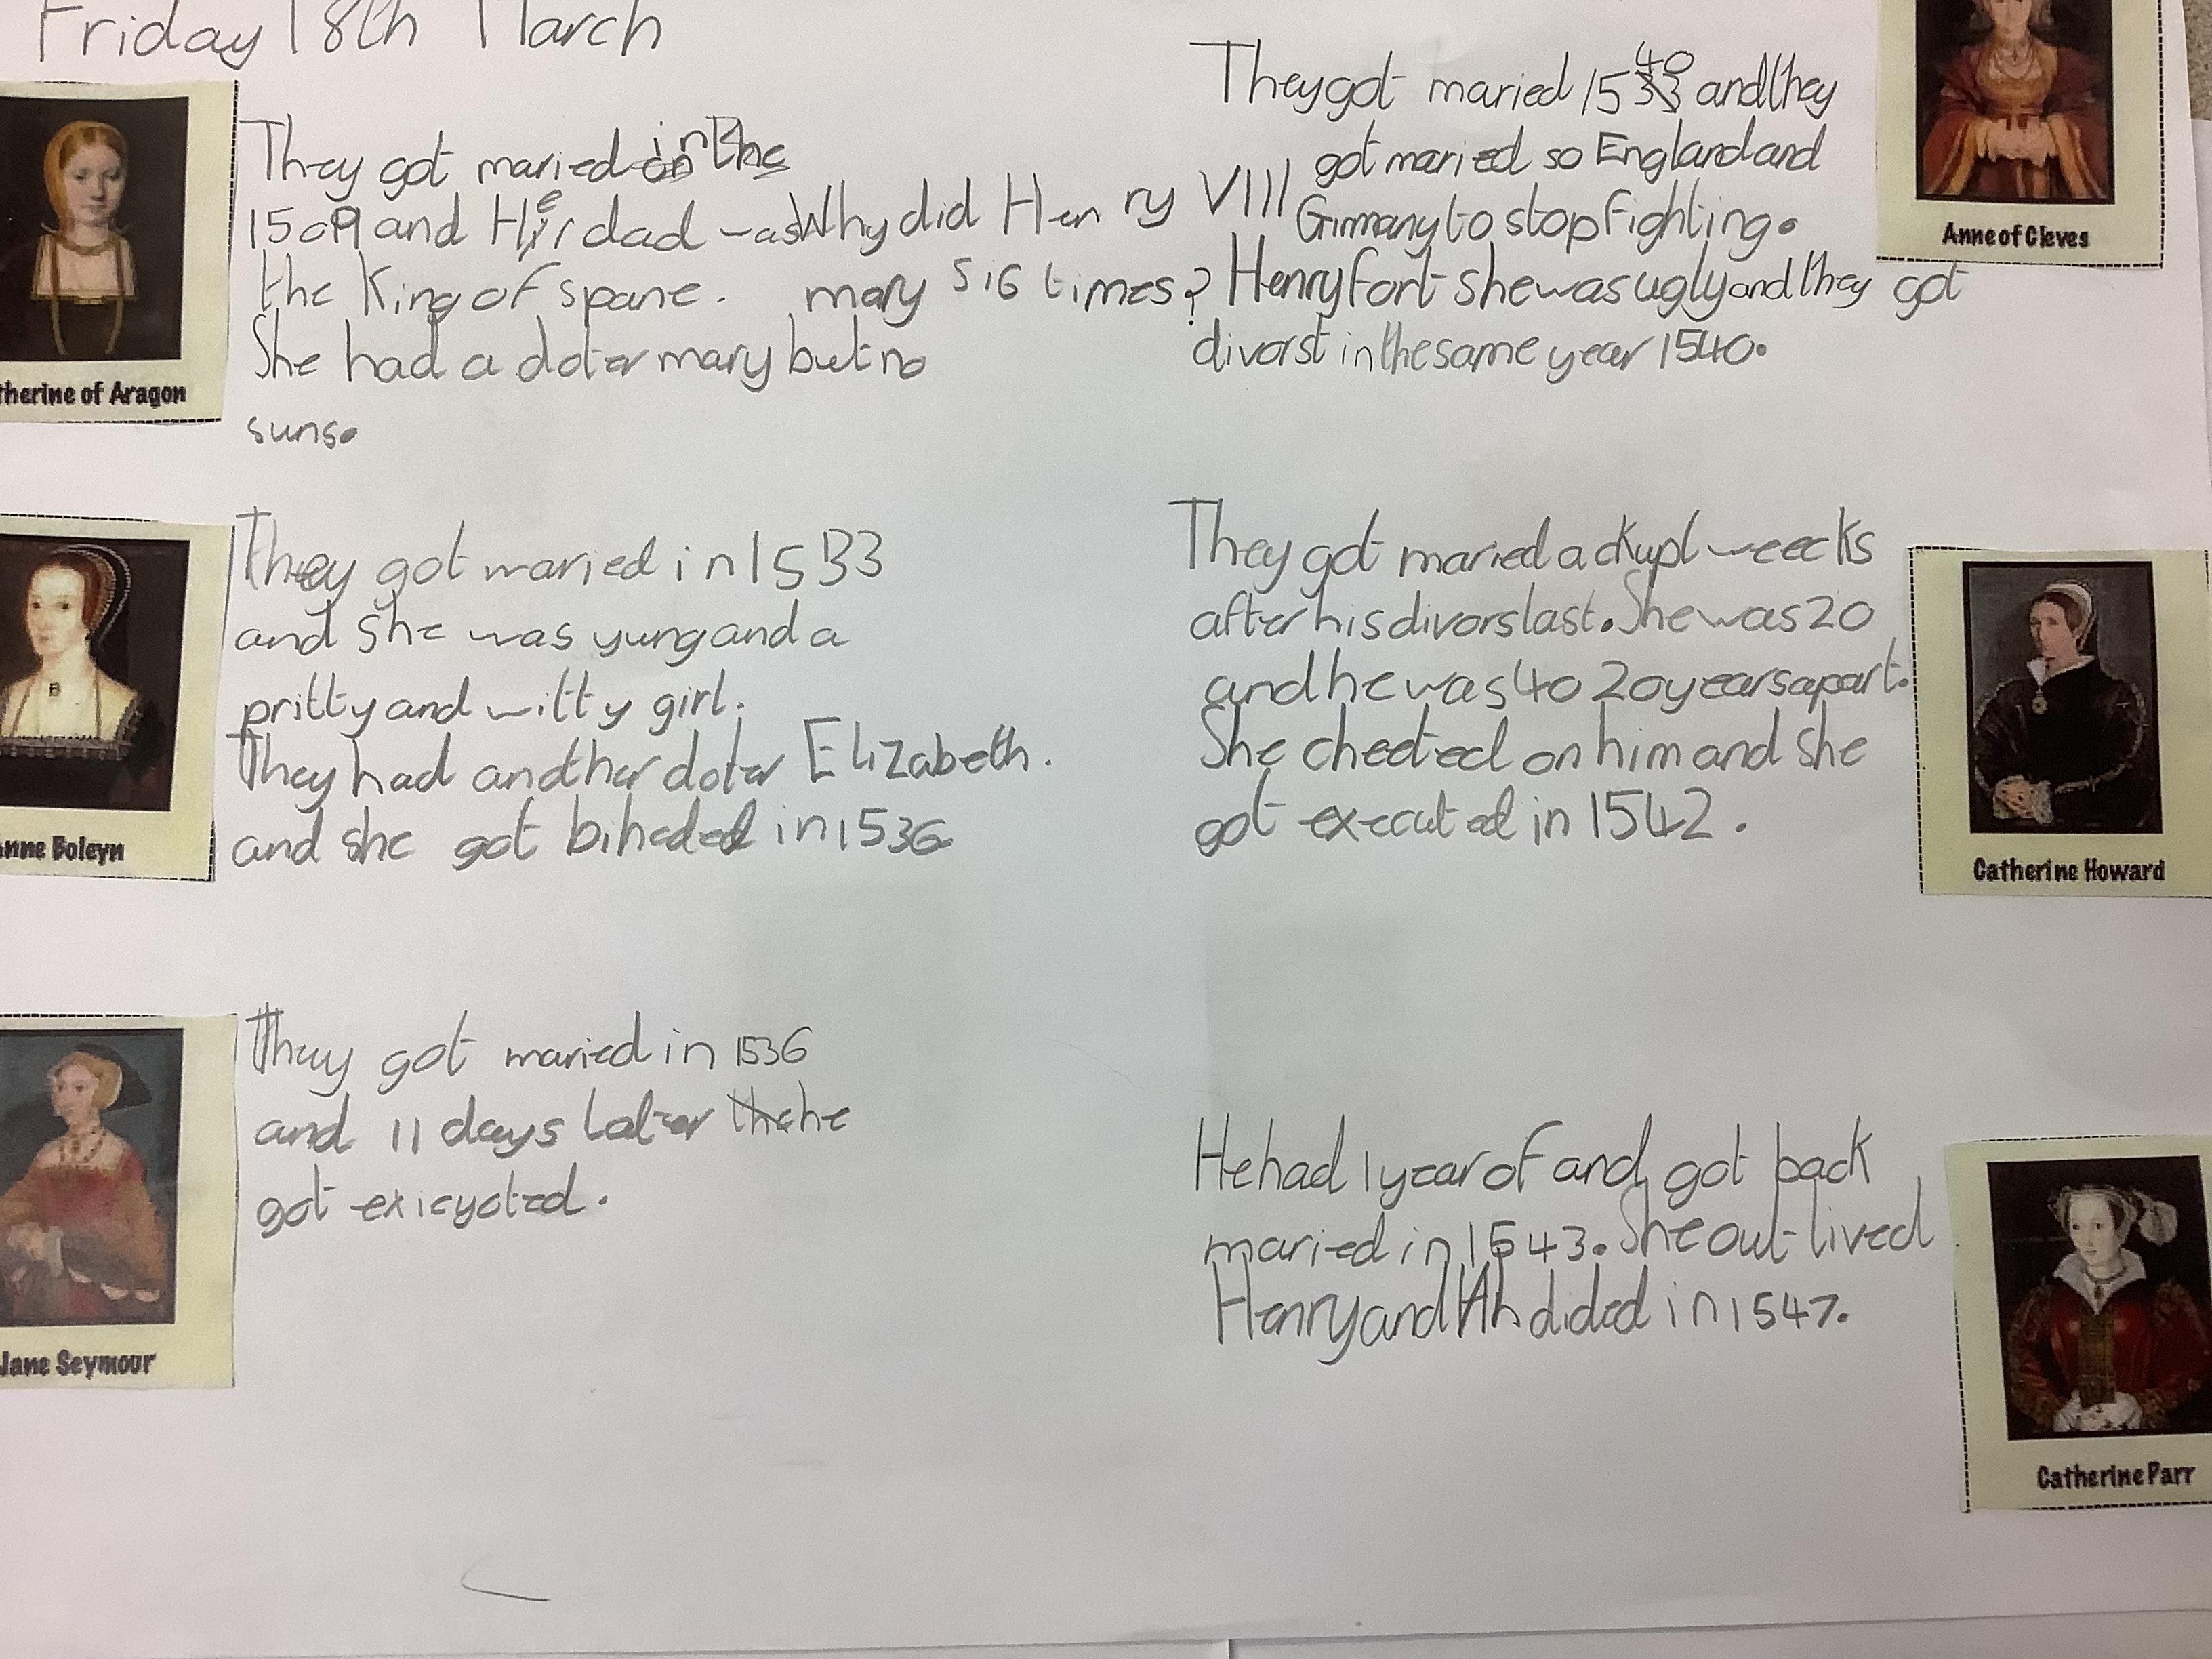 Friday 18th March
They got maried in the
1509 and Her dad was
the King of spane.
She had a doter mary but no
suns.
therine of Aragon
Why did Henry VIII
mary six times?
They got maried in 1533
and she was yung and a
pritty and witty girl.
They had another doter Elizabeth.
and she got biheded in 1536
nne Boleyn
They got maried in 1536
and 11 days later he
got exicyoted.
Jane Seymour
They got maried 1540 and they
got maried so England and
Girmany to stop fighting.
Henry fort she was ugly and they got
divorst in the same year 1540.
Anne of Cleves
They got maried a ckupl weecks
after his divors last. She was 20
and he was 40 20 years apart.
She cheeted on him and she
got executed in 1542.
Catherine Howard
He had 1 year of and got back
maried in 1543. She out-lived
Henry and dided in 1547.
Catherine Parr